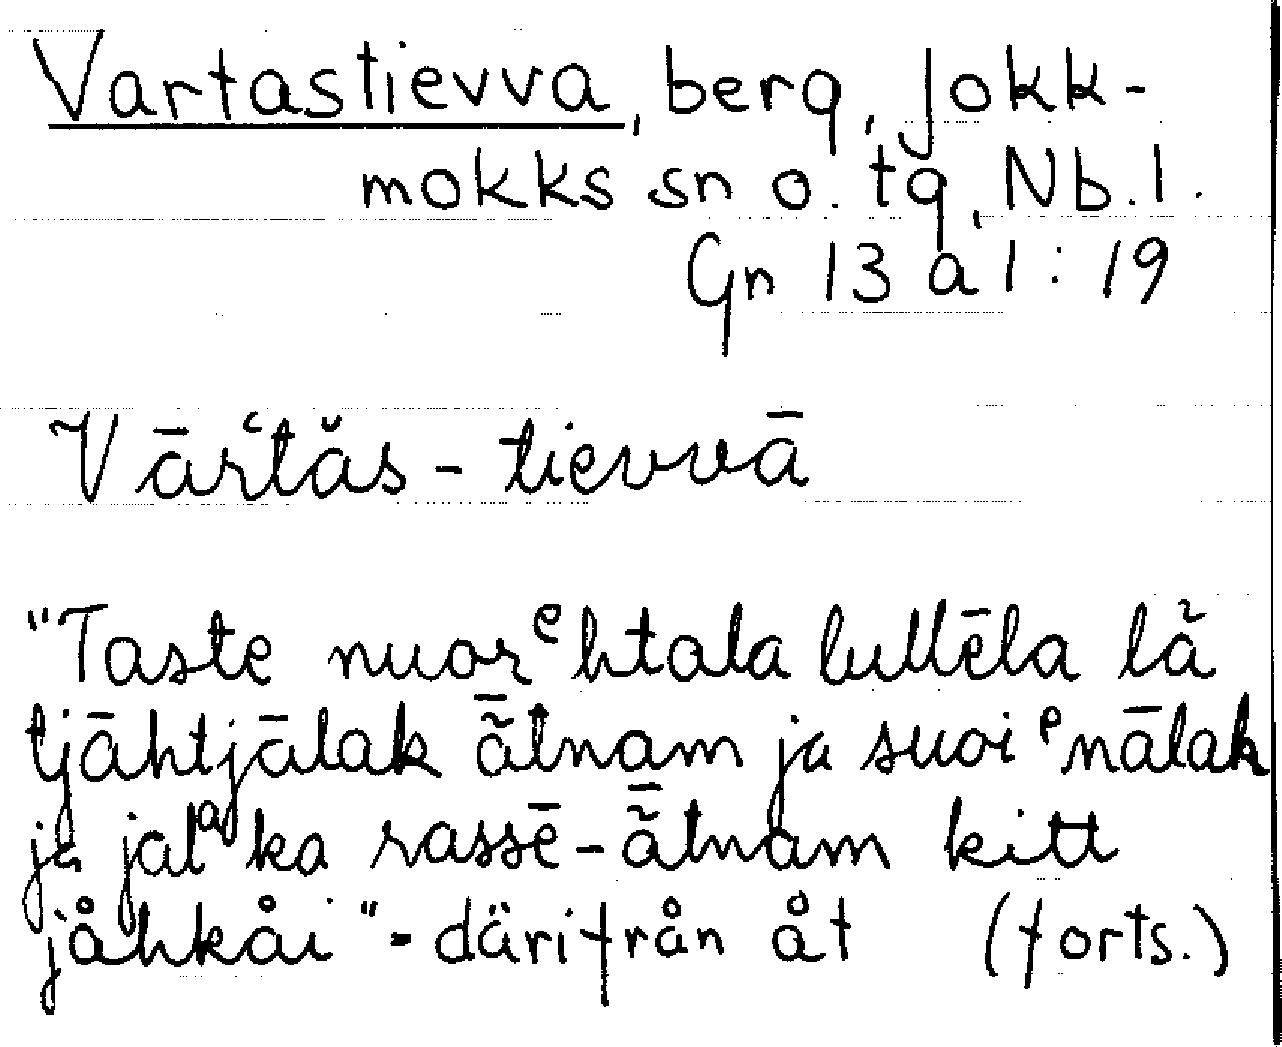 Vartastievva, berg, Jokk-
mokks sn o. tg, Nb. l.
Gn 13 a 1 : 19
Vārʽtăs - tievvā
"Taste nuorᵉhtala lullēla lā̆
tjāhtjālak ā̃tnam ja suoiᵉnālak
ja jalᵃka rassē-ā̃tnam kitt
jåhkåi" - därifrån åt (forts.)